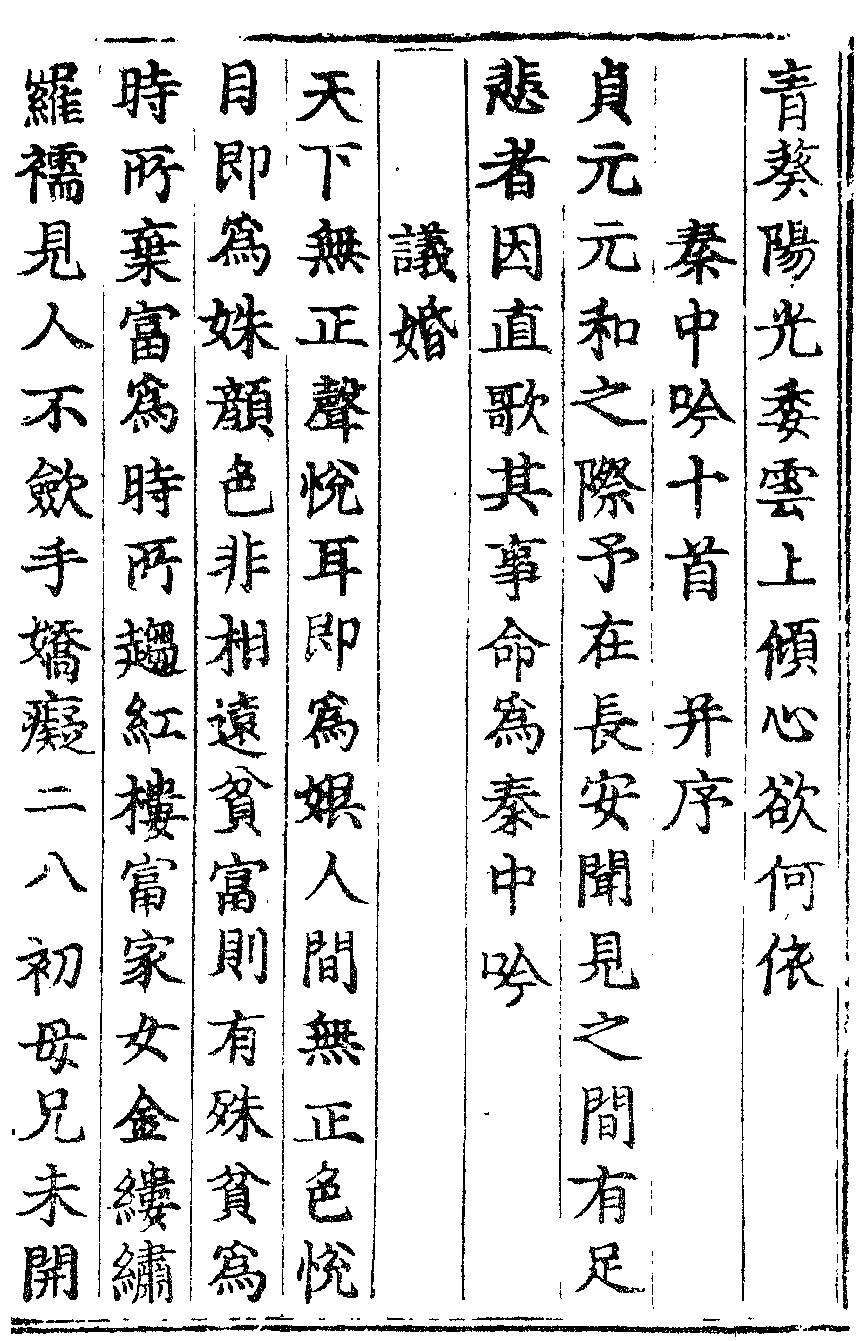 青葵陽光委雲上傾心欲何依
秦中吟十首　并序
貞元元和之際予在長安聞見之間有足
悲者因直歌其事命爲秦中吟
議婚
天下無正聲悅耳即爲娯人間無正色悅
目即爲姝顔色非相遠貧富則有殊貧爲
時所棄富爲時所趨紅樓富家女金縷繡
羅襦見人不斂手嬌癡二八初母兄未開